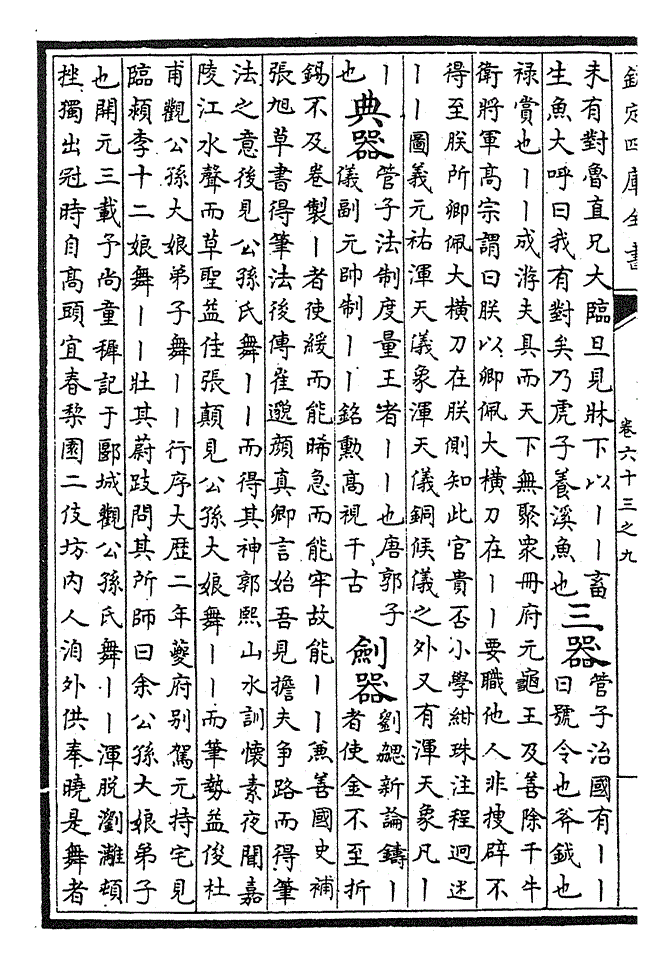 欽定四庫全書
卷六十三之九
未有對魯直兄大臨旦見牀下以丨丨畜
生魚大呼曰我有對矣乃虎子養溪魚也
三器
管子治國有丨丨
曰號令也斧鉞也
祿賞也丨丨成游夫具而天下無聚衆冊府元龜王及善除千牛
衛將軍高宗謂曰朕以卿佩大橫刀在丨丨要職他人非搜辟不
得至朕所卿佩大橫刀在朕側知此官貴否小學紺珠注程迥迷
丨丨圖義元祐渾天儀象渾天儀銅候儀之外又有渾天象凡丨
丨
也
典器
管子法制度量王者丨丨也唐郭子
儀副元帥制丨丨銘勲高視千古
劍器
劉勰新論鑄丨
者使金不至折
錫不及卷製丨者使緩而能晞急而能牢故能丨丨兼善國史補
張旭草書得筆法後傳崔邈顔真卿言始吾見擔夫争路而得筆
法之意後見公孫氏舞丨丨而得其神郭熙山水訓懷素夜聞嘉
陵江水聲而草聖益佳張顛見公孫大娘舞丨丨而筆勢益俊杜
甫觀公孫大娘弟子舞丨丨行序大歷二年夔府别駕元持宅見
臨潁李十二娘舞丨丨壯其蔚跂問其所師曰余公孫大娘弟子
也開元三載予尚童穉記于郾城觀公孫氏舞丨丨渾脱瀏灕頓
挫獨出冠時自高頭宜春棃園二伎坊内人洎外供奉曉是舞者